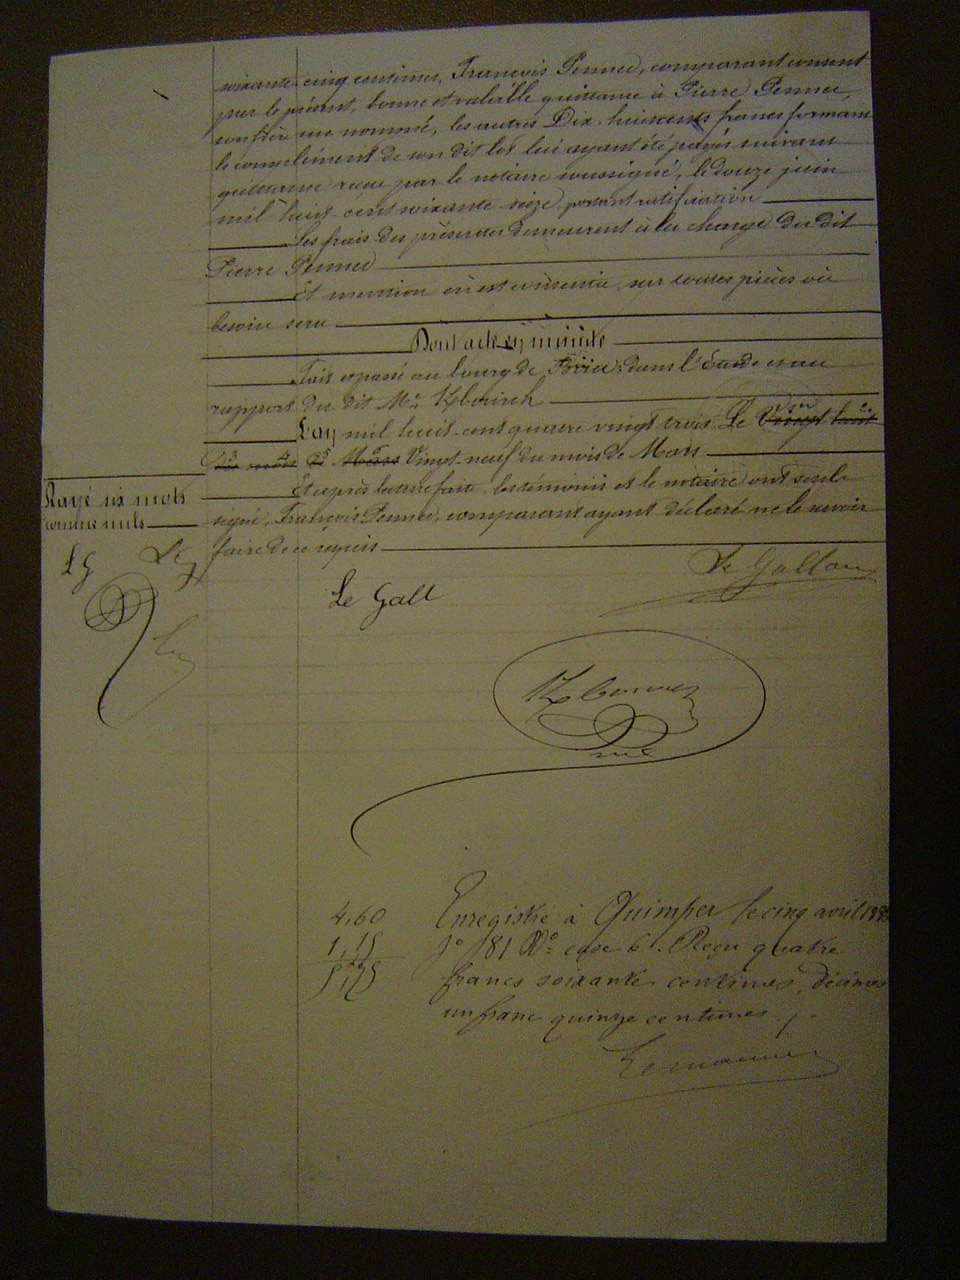 soixante-cinq centimes, François Pennec, comparant consent
par le présent, bonne et valable quittance à Pierre Pennec,
son frère sus nommé, les autres Dix-huit cents francs formant
le complément de son dit lot lui ayant été payés suivant
quittance reçue par le notaire soussigné, le douze juin
mil huit-cent soixante-seize, portant ratification
Les frais des présentes demeurent à la charge du dit
Pierre Pennec
Et mention en est consentie sur toutes pièces où
besoin sera
Dont acte en minute
Fait et passé au bourg de Briec, dans l'Étude et au
rapport du dit Me
L'an mil huit-cent quatre vingt trois Le Vingt huit
du mois de Mars Vingt-neuf du mois de Mars
Et après lecture faite, les témoins et le notaire ont seuls
signé, François Pennec, comparant ayant déclaré ne le savoir
faire de ce requis
Rayé six mots
comme nuls
LG
Le Gall
Le Gallou
4,60
1,15
5,75
Enregistré à Quimper le cinq avril 1883
fo 81 Ro case 6. Reçu quatre
francs soixante centimes, décimes
un franc quinze centimes